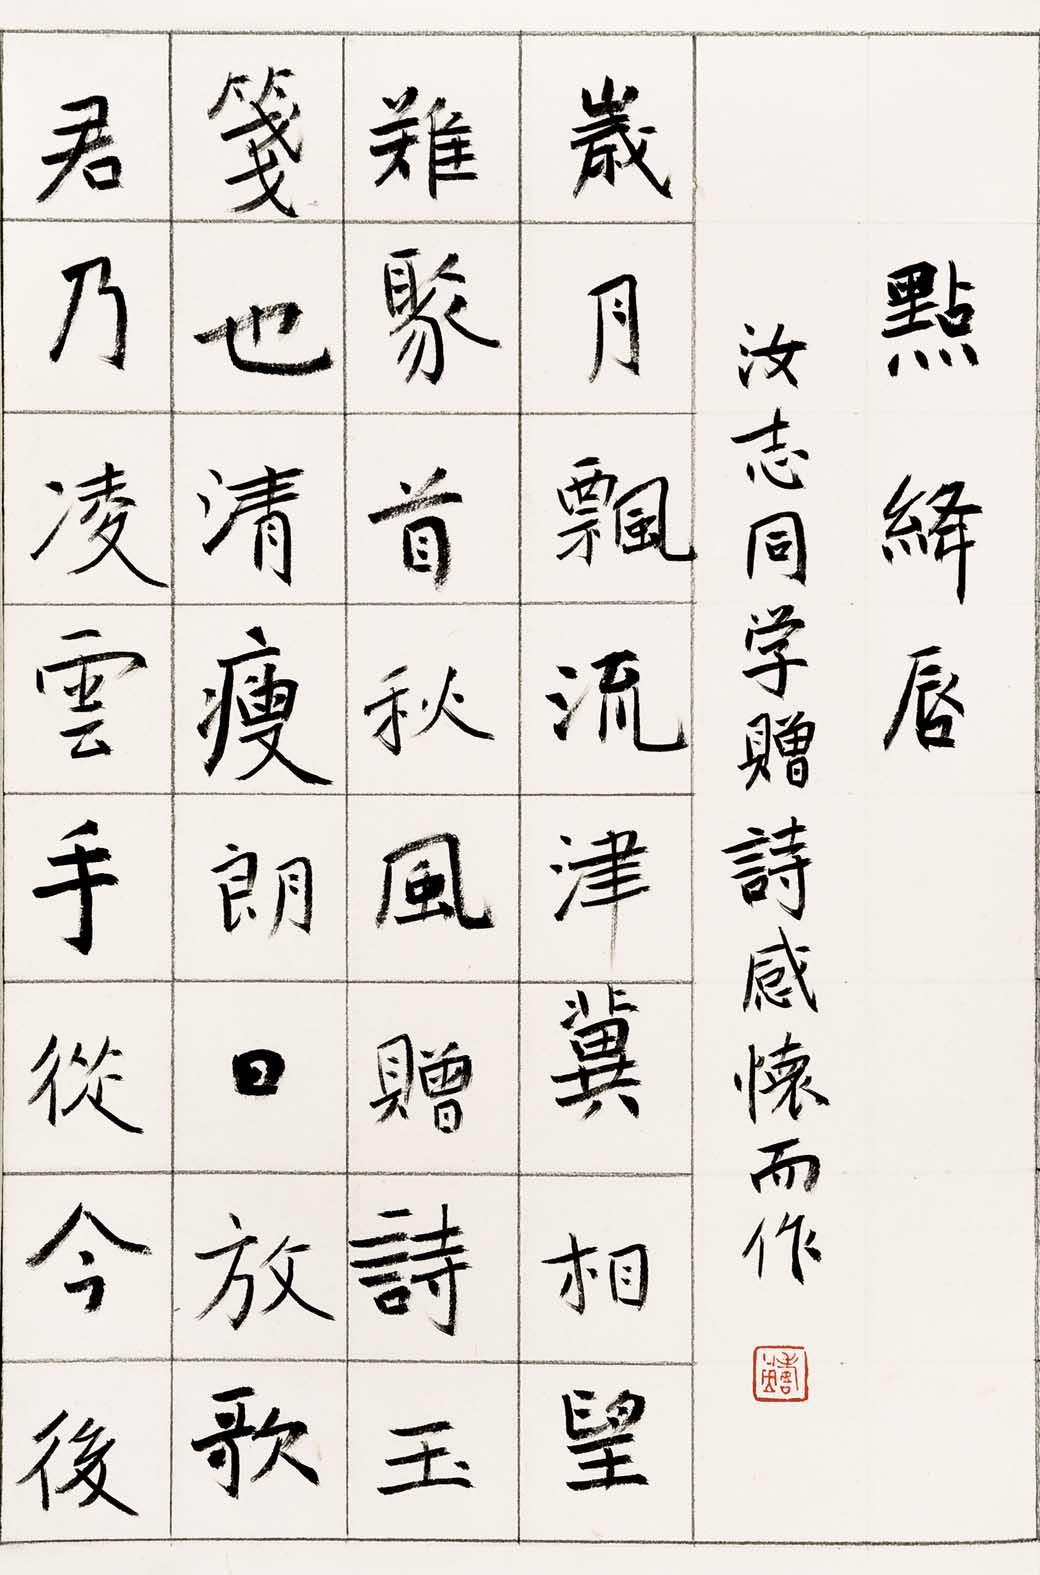 點絳唇
汝志同学贈詩感懷而作
歲月飄流津冀相望
難聚首秋風贈詩玉
箋也清瘦朗日放歌
君乃凌雲手從今後